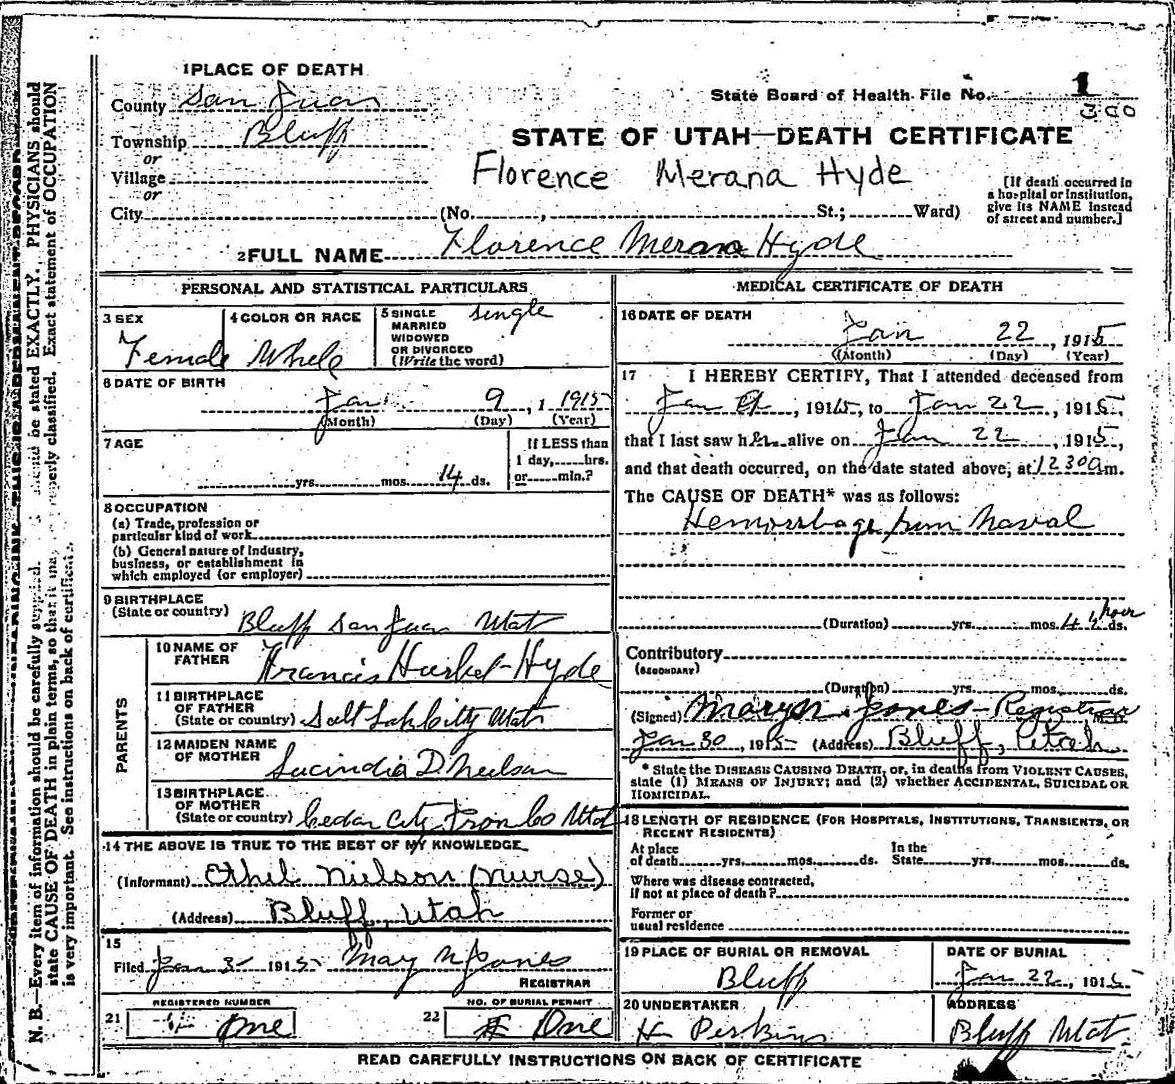 1 PLACE OF DEATH
County San Juan
Township Bluff
or
Village
or
City
State Board of Health File No. 1
300
STATE OF UTAH—DEATH CERTIFICATE
Florence Merana Hyde
(No. , St.; Ward)
[If death occurred in
a hospital or institution,
give its NAME instead
of street and number.]
2 FULL NAME Florence Merana Hyde
PERSONAL AND STATISTICAL PARTICULARS
3 SEX
Female
4 COLOR OR RACE
5 SINGLE
MARRIED
WIDOWED
OR DIVORCED
(Write the word)
single
6 DATE OF BIRTH
Jan 9, 1 1915
(Month) (Day) (Year)
7 AGE
yrs. mos. 14 ds.
If LESS than
1 day, hrs.
or min.?
8 OCCUPATION
(a) Trade, profession or
particular kind of work
(b) General nature of Industry,
business, or establishment in
which employed (or employer)
9 BIRTHPLACE
(State or country) Bluff San Juan Utah
PARENTS
10 NAME OF
FATHER Francis Hyde
11 BIRTHPLACE
OF FATHER
(State or country) Salt Lake City Utah
12 MAIDEN NAME
OF MOTHER Lucindia D. Neilson
13 BIRTHPLACE
OF MOTHER
(State or country) Cedar City Iron Co Utah
14 THE ABOVE IS TRUE TO THE BEST OF MY KNOWLEDGE
(Informant) Ethel Nielson (nurse)
(Address) Bluff, Utah
15
Filed Jan 3 1915 May N Jones
REGISTRAR
REGISTERED NUMBER
21 One
NO. OF BURIAL PERMIT
22 One
MEDICAL CERTIFICATE OF DEATH
16 DATE OF DEATH
Jan 22, 1915
(Month) (Day) (Year)
17 I HEREBY CERTIFY, That I attended deceased from
Jan 9, 1915, to Jan 22, 1915,
that I last saw her alive on Jan 22, 1915,
and that death occurred, on the date stated above, at 12 30 a m.
The CAUSE OF DEATH* was as follows:
Hemorrhage from Naval
(Duration) yrs. mos. hour ds.
Contributory
(SECONDARY)
(Duration) yrs. mos. ds.
(Signed) Mary N Jones - Registrar M.D.
Jan 30, 1915 (Address) Bluff, Utah
* State the DISEASE CAUSING DEATH, or, in deaths from VIOLENT CAUSES,
state (1) MEANS OF INJURY; and (2) whether ACCIDENTAL, SUICIDAL OR
HOMICIDAL.
18 LENGTH OF RESIDENCE (FOR HOSPITALS, INSTITUTIONS, TRANSIENTS, OR
RECENT RESIDENTS)
At place
of death yrs. mos. ds.
In the
State yrs. mos. ds.
Where was disease contracted,
if not at place of death?
Former or
usual residence
19 PLACE OF BURIAL OR REMOVAL
Bluff
DATE OF BURIAL
Jan 22, 1915
20 UNDERTAKER
H Perkins
ADDRESS
Bluff Utah
READ CAREFULLY INSTRUCTIONS ON BACK OF CERTIFICATE
N. B.—Every item of information should be carefully supplied. should be stated EXACTLY. PHYSICIANS should
state CAUSE OF DEATH in plain terms, so that it may properly classified. Exact statement of OCCUPATION
is very important. See instructions on back of certificate.